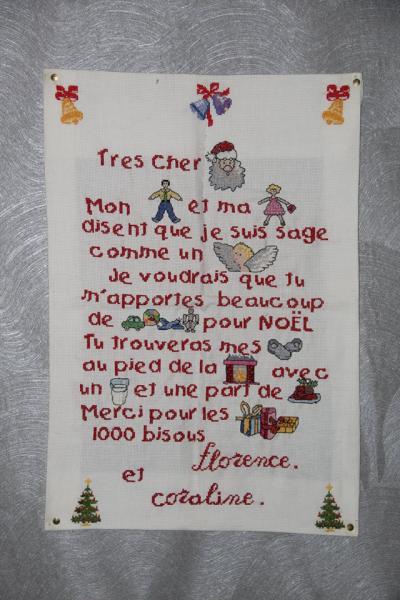 Tres cher
Mon et ma
disent que je suis sage
comme un
Je voudrais que tu
m'apportes beaucoup
de pour NOËL
Tu trouveras mes
au pied de la avec
un et une part de
Merci pour les
1000 bisous
florence.
et
coraline.